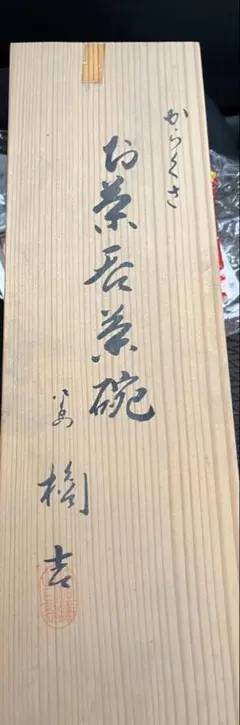 からくさ
お茶呑茶碗
橘吉